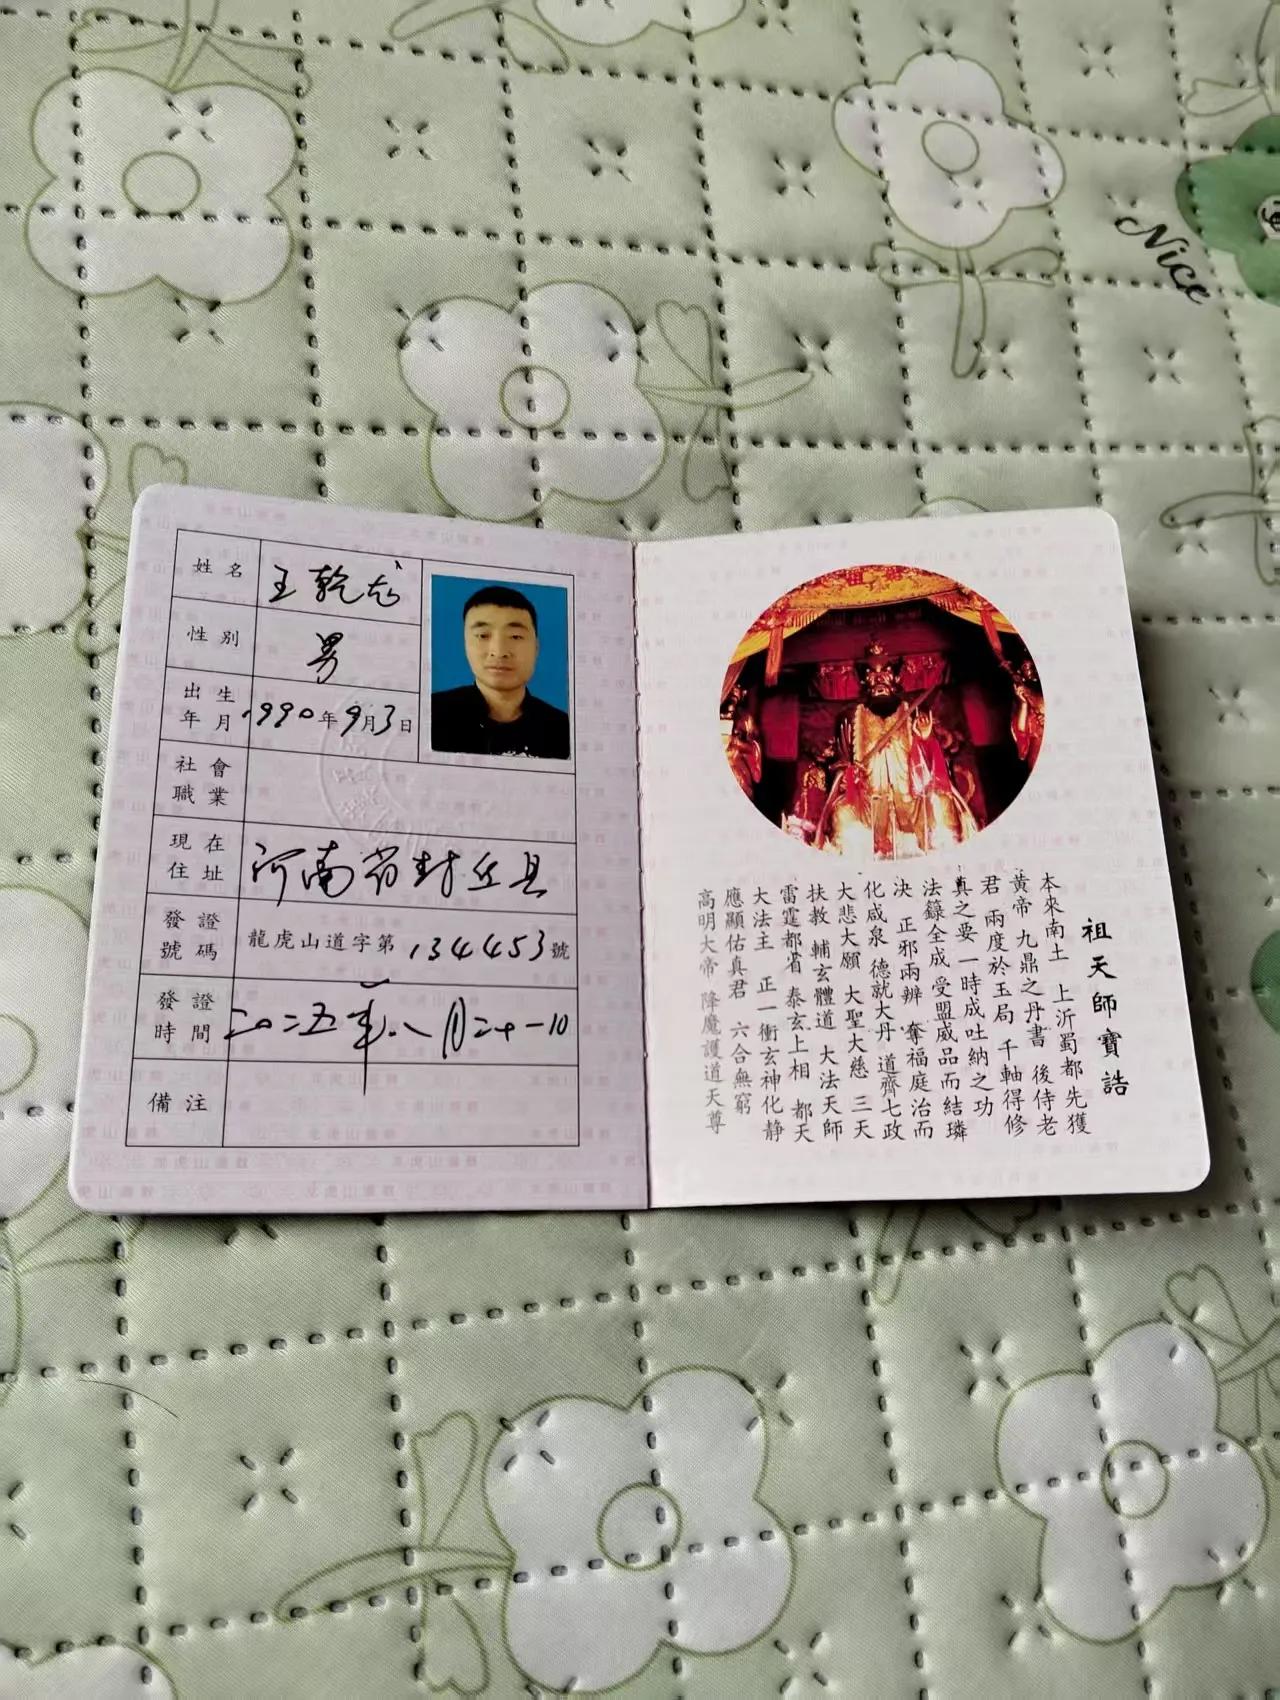 Nice
姓名 王乾龙
性别 男
出生年月 1990年9月3日
社會職業
現在住址 河南省封丘县
發證號碼 龍虎山道字第134453號
發證時間 二〇二五年八月二十一日
備注
祖天師寶誥
本來南土 上沂蜀都先獲
黃帝 九鼎之丹書 後侍老
君 兩度於玉局 千軸得修
真之要 一時成吐納之功
法籙全成 受盟威品而結璘
決 正邪兩辨 奪福庭治而
化咸泉 德就大丹 道齊七政
大悲大願 大聖大慈 三天
扶教 輔玄體道 大法天師
雷霆都省 泰玄上相 都天
大法主 正一衝玄神化静
應顯佑真君 六合無窮
高明大帝 降魔護道天尊